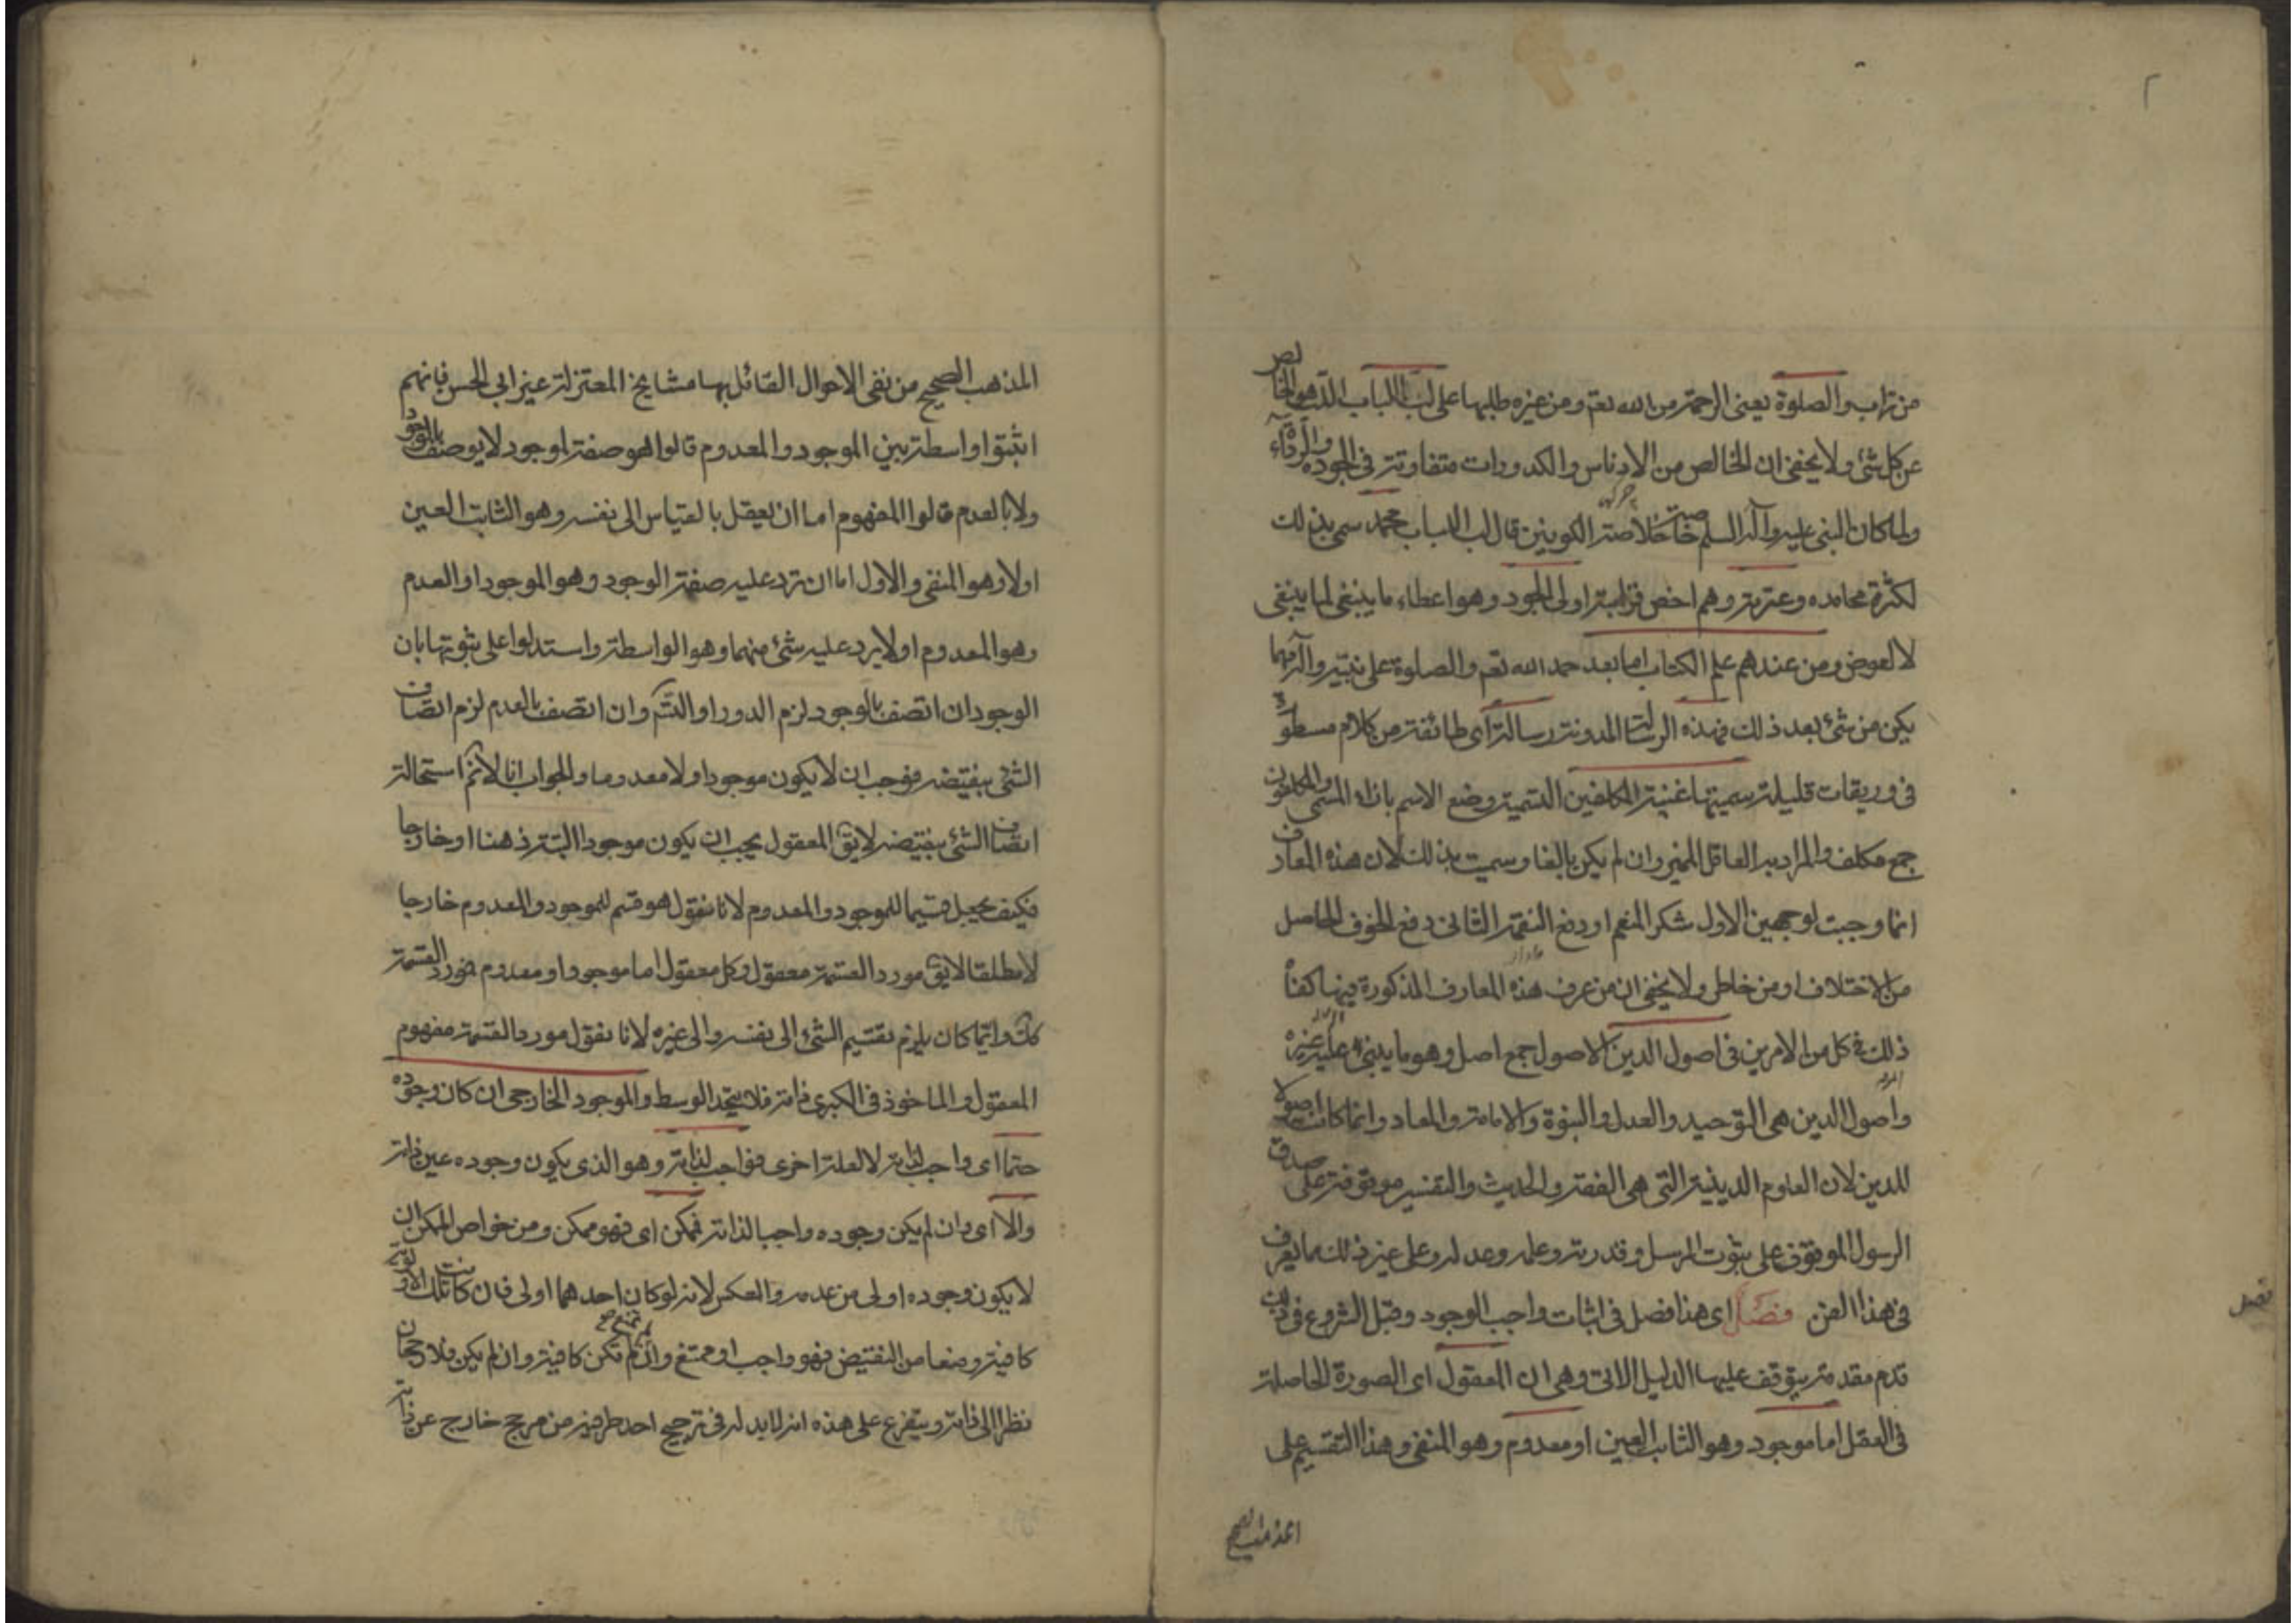 ٢
من تراب والصلوة يعنى الرحمة من الله تعم ومن غيره طلبها على لب اللباب الذى هو الخالص
عن كل شئ ولا يخفى ان الخالص من الادناس والكدورات متفاوتة فى الجوده والردائه
ولما كان النبى عليه وآله السلم خلاصة الكونين قال لب اللباب محمد سمى بذلك
لكثرة محامده وعترته وهم اخص قرابته اولى الجود وهو اعطاء ما ينبغى لما ينبغى
لا لعوض ومن عندهم علم الكتاب اما بعد حمد الله تعم والصلوة على نبيه وآله مهما
يكن من شئ بعد ذلك فهذه الرسالة المدونة رسالة اى طائفة من كلام مسطور
فى وريقات قليلة سميتها غنية المكلفين التسمية وضع الاسم بازاء المسمى والمكلفون
جمع مكلف والمراد به العاقل المميز وان لم يكن بالغا وسميت بذلك لان هذه المعارف
انما وجبت لوجهين الاول شكر المنعم او دفع النقمة الثانى دفع الخوف الحاصل
من الاختلاف او من خاطر ولا يخفى ان من عرف هذه المعارف المذكورة فيها كفتا
ذلك فى كل من الامرين فى اصول الدين الاصول جمع اصل وهو ما يبنى عليه غيره
واصول الدين هى التوحيد والعدل والنبوة والامامة والمعاد وانما كانت اصولا
للدين لان العلوم الدينية التى هى الفقه والحديث والتفسير موقوفة على صدق
الرسول الموقوف على ثبوت المرسل وقدرته وعلمه وعدله وعلى غير ذلك مما يعرف
فى هذا الفن فصل اى هذا فصل فى اثبات واجب الوجود وقبل الشروع فى ذلك
قدم مقدمة يتوقف عليها الدليل الاتى وهى ان المعقول اى الصورة الحاصلة
فى العقل اما موجود وهو الثابت العين او معدوم وهو المنفى وهذا التقسيم على
المذهب الصحيح
فصل
المذهب الصحيح من نفى الاحوال القائل بها مشايخ المعتزلة غير ابى الحسن فانهم
اثبتوا واسطة بين الموجود والمعدوم قالوا هو صفة لموجود لا يوصف بالوجود
ولا بالعدم قالوا المفهوم اما ان يعقل بالقياس الى نفسه وهو الثابت العين
اولا وهو المنفى والاول اما ان ترد عليه صفة الوجود وهو الموجود او العدم
وهو المعدوم او لا يرد عليه شئ منهما وهو الواسطة واستدلوا على ثبوتها بان
الوجود ان اتصف بالوجود لزم الدور او التسم وان اتصف بالعدم لزم اتصاف
الشئ بنقيضه فوجب ان لا يكون موجودا ولا معدوما والجواب انا لانم استحالة
اتصاف الشئ بنقيضه لايق المعقول يجب ان يكون موجودا البتة ذهنا او خارجا
فكيف يجعل قسيما للموجود والمعدوم لانا نقول هو قسم للموجود والمعدوم خارجا
لا مطلقا لايق مورد القسمة معقول وكل معقول اما موجود او معدوم فمورد القسمة
كك وايما كان يلزم تقسيم الشئ الى نفسه والى غيره لانا نقول مورد القسمة مفهوم
المعقول والماخوذ فى الكبرى ذاته فلا يتحد الوسط والموجود الخارجى ان كان وجوده
حتما اى واجب لذاته لا لعلة اخرى فواجب لذاته وهو الذى يكون وجوده عين ذاته
والا اى وان لم يكن وجوده واجبا لذاته فممكن اى فهو ممكن ومن خواص الممكن ان
لا يكون وجوده اولى من عدمه والعكس لانه لو كان احدهما اولى فان كانت تلك الاولوية
كافية ومنعا من النقيض فهو واجب او ممتنع وان لم تكن كافية وان لم يكن فلا رجحان
نظرا الى ذاته ويتفرع على هذه انه لا بد له فى ترجيح احد طرفيه من مرجح خارج عن ذاته